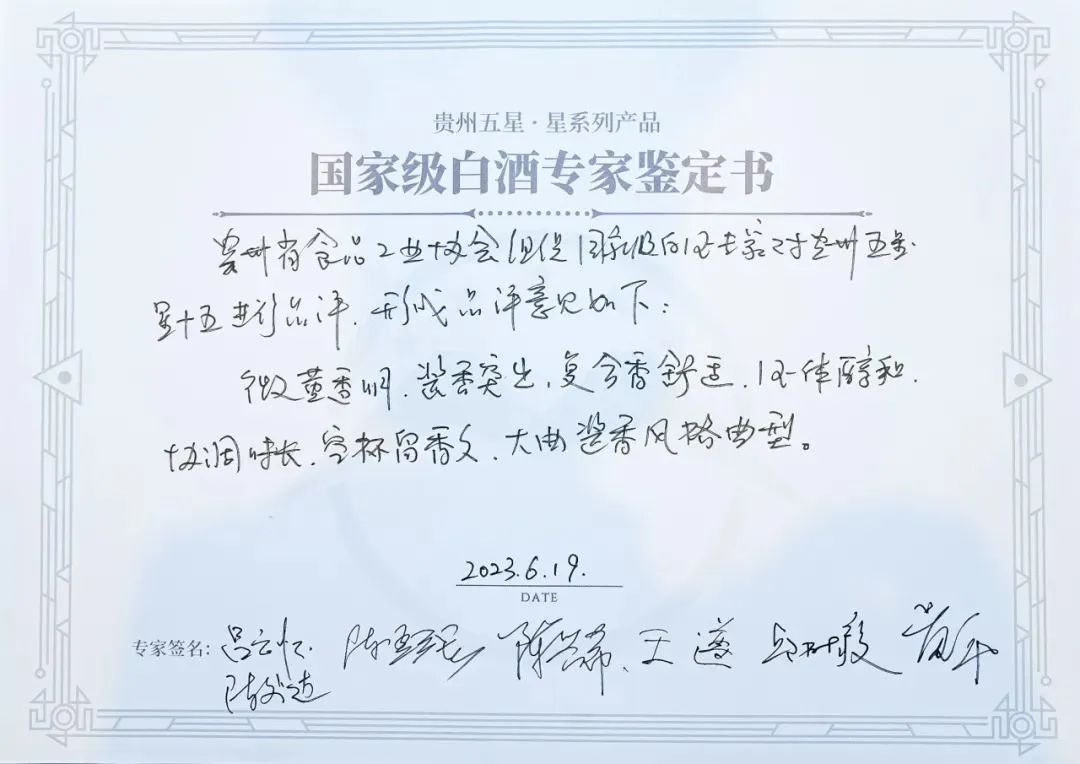 贵州五星·星系列产品
国家级白酒专家鉴定书
贵州省食品工业协会组织国家级白酒专家对贵州五星·
星十五进行品评，形成品评意见如下：
微黄透明，酱香突出，复合香舒适，酒体醇和，
协调味长，空杯留香久，大曲酱香风格典型。
2023.6.19.
DATE
专家签名：吕云怀 王遵